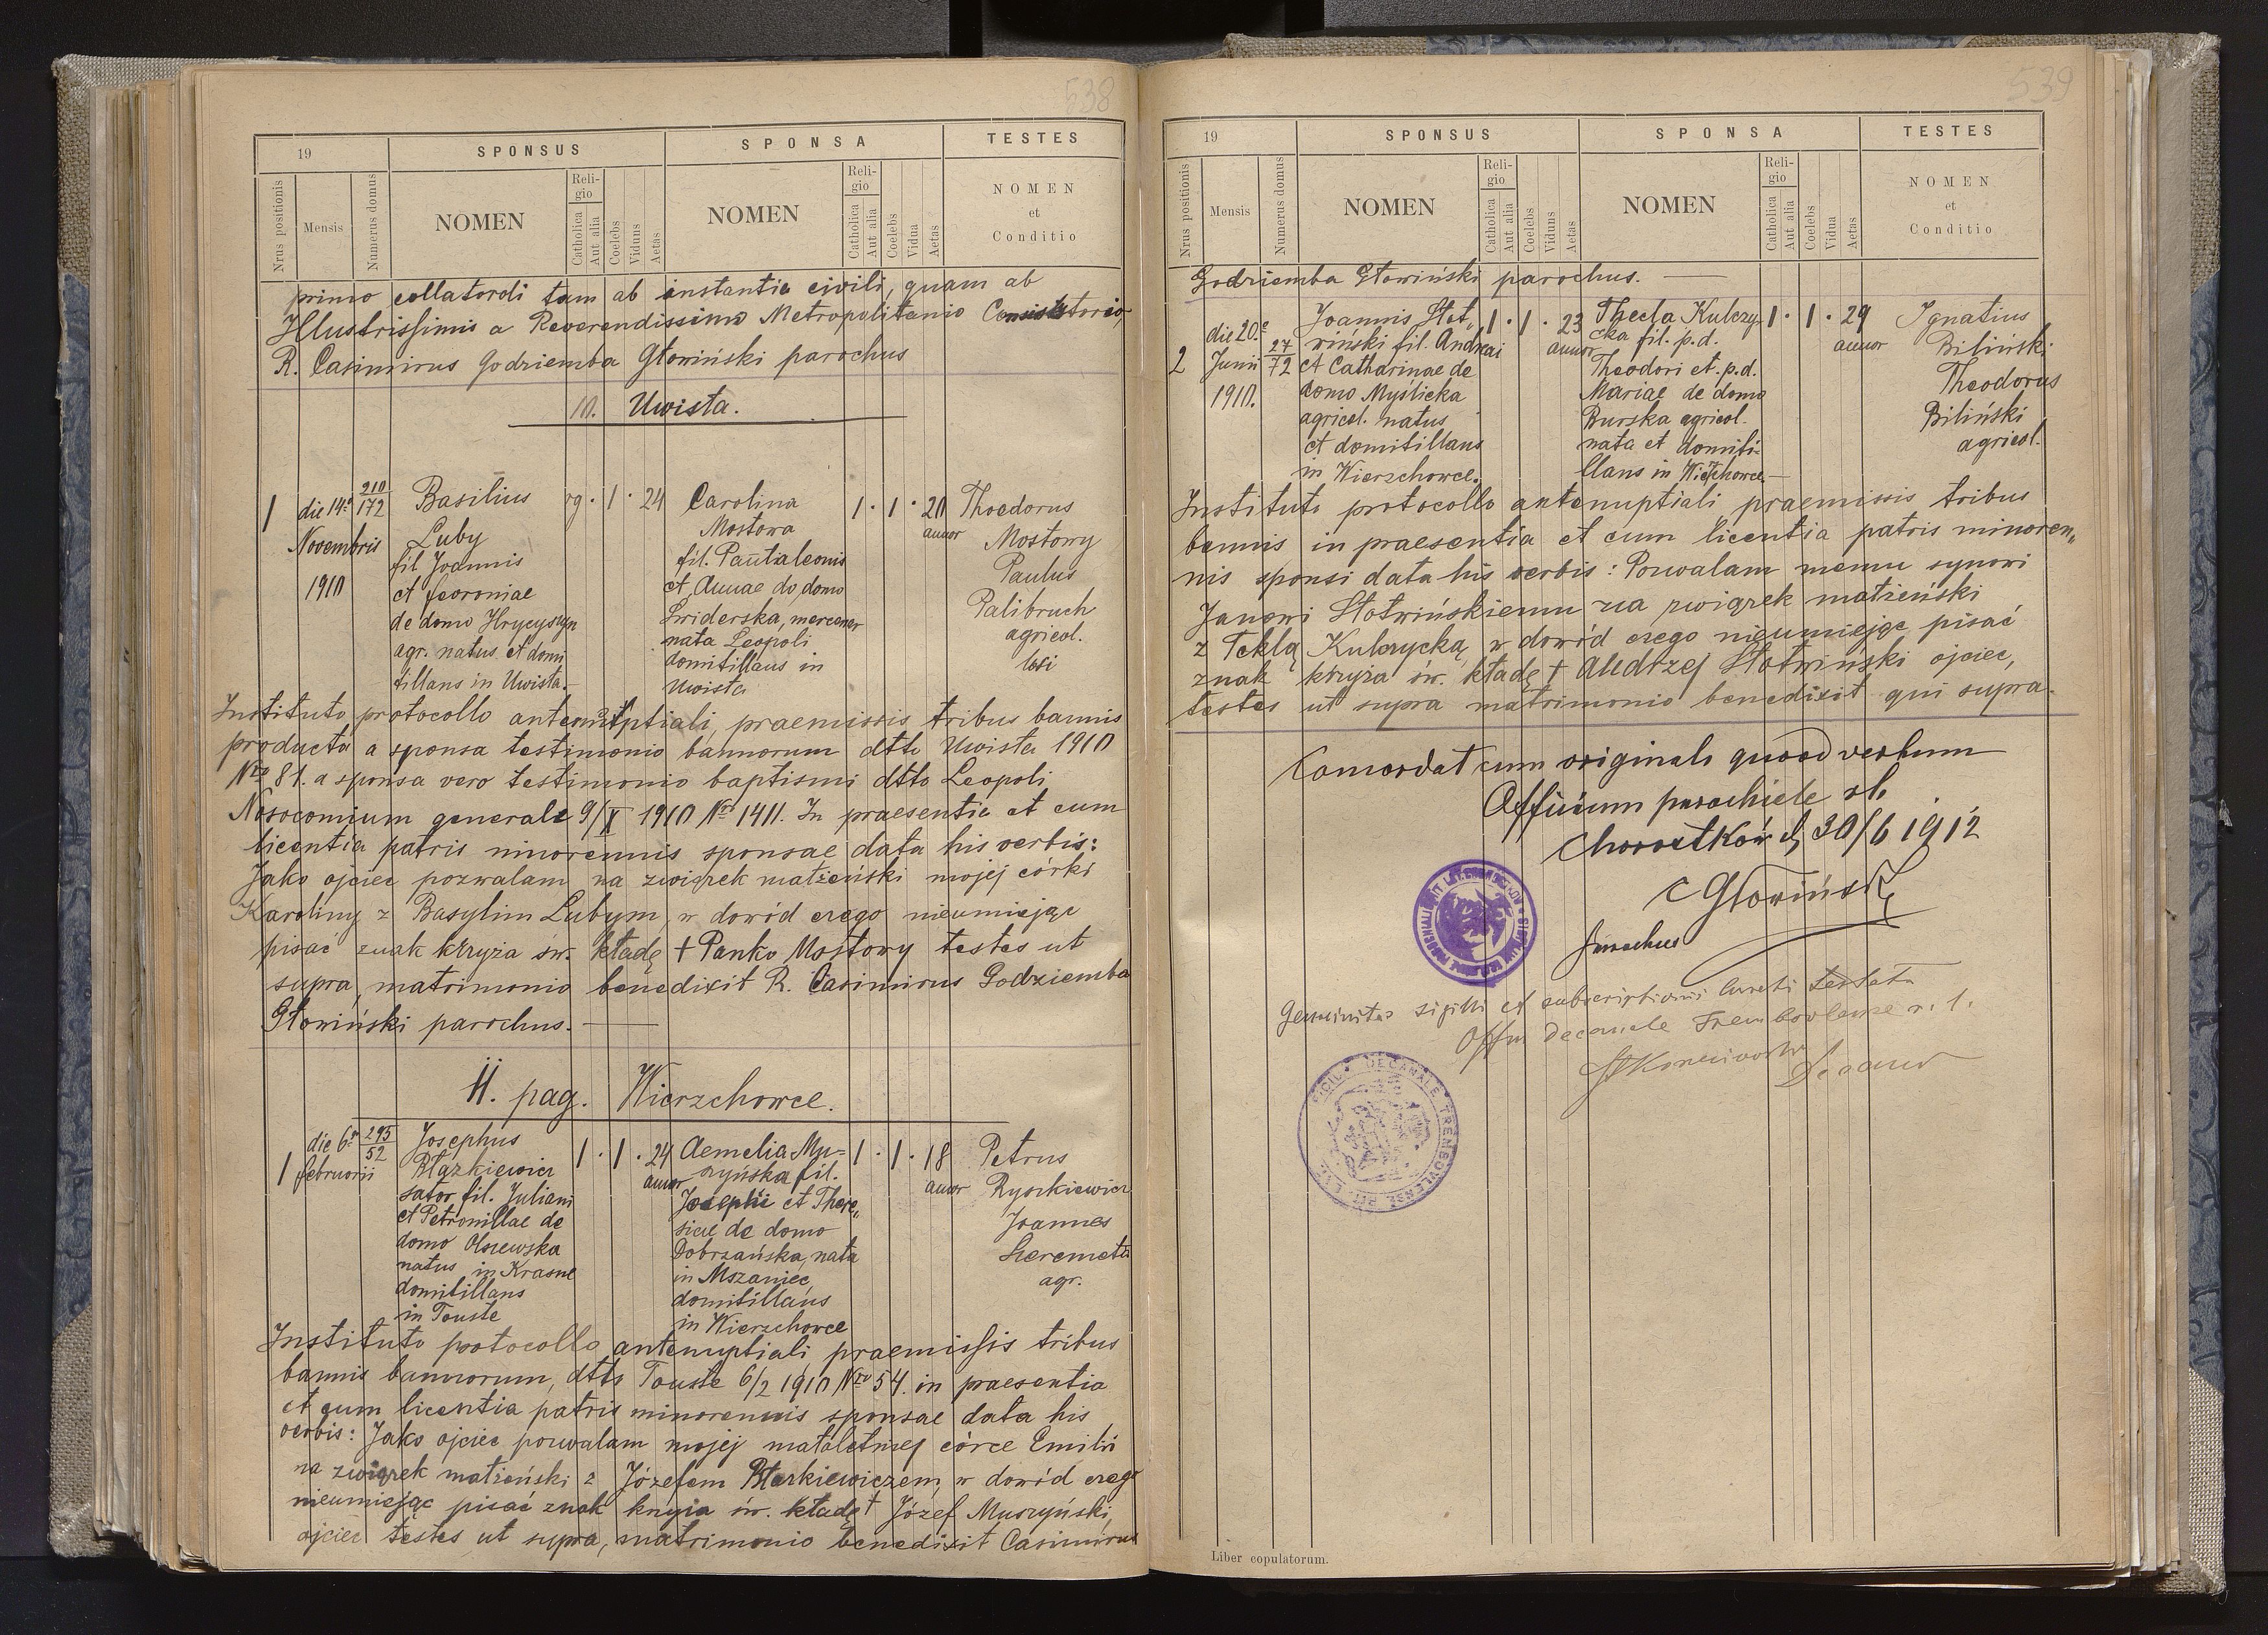 538
19
SPONSUS
SPONSA
TESTES
Nrus positionis
Mensis
Numerus domus
NOMEN
Religio
Catholica
Aut alia
Coelebs
Viduus
Aetas
NOMEN
Religio
Catholica
Aut alia
Coelebs
Vidua
Aetas
NOMEN
et
Conditio
primo collatordi tam ab instantia civili, quam ab
Illustrissimis a Reverendissimo Metropolitanio Consistorio,
R. Casimirus Godziemba Głowiński parochus
10. Uwista.
1
die 14a
Novembris
1910
210
172
Basilius
Luby
fil Joannis
et feoroniae
de domo Hrycyszyn
agr. natus et domi
tillans in Uwista.
rg. 1 . 24
Carolina
Mostowa
fil. Pantaleonis
et Annae de domo
Świderska, mercener
nata Leopoli
domitillans in
Uwista
1 . 1 . 20
annor
Theodorus
Mostowy
Paulus
Palibruch
agricol.
loci
Instituto protocollo antenuptiali, praemissis tribus bannis
producta a sponsa testimonio bannorum dtto Uwista 1910
Nro 81. a sponsa vero testimonio baptismi dtto Leopoli
Nosocomium generale 9/X 1910 Nro 1411. In praesentia et cum
licentia patris minorennis sponsae data his verbis:
Jako ojciec pozwalam na związek małżeński mojej córki
Karoliny z Basylim Lubym, w dowód czego nieumiejąc
pisać znak krzyża św. kładę + Panko Mostowy testes ut
supra, matrimonio benedixit R. Casimirus Godziemba
Głowiński parochus.
11. pag. Wierzchowce.
1
die 6a
februarii
295
52
Josephus
Błażkiewicz
sator fil. Juliani
et Petronillae de
domo Olszewska
natus in Krasne
domitillans
in Touste
1 . 1 . 24
annor
Aemelia Mu-
szyńska fil.
Josephi et There,,
siae de domo
Dobrzańska, nata
in Mszaniec,
domitillans
in Wierzchowce
1 . 1 . 18
annor
Petrus
Ryszkiewicz
Joannes
Szeremeta
agr.
Instituto protocollo antenuptiali praemissis tribus
bannis bannorum, dtto Touste 6/2 1910 Nro 54. in praesentia
et cum licentia patris minorennis sponsae data his
verbis: Jako ojciec pozwalam mojej małoletniej córce Emilii
na związek małżeński z Józefem Błażkiewiczem, w dowód czego
nieumiejąc pisać znak krzyża św. kładę + Józef Muszyński,
ojciec testes ut supra, matrimonio benedixit Casimirus
539
19
SPONSUS
SPONSA
TESTES
Nrus positionis
Mensis
Numerus domus
NOMEN
Religio
Catholica
Aut alia
Coelebs
Viduus
Aetas
NOMEN
Religio
Catholica
Aut alia
Coelebs
Vidua
Aetas
NOMEN
et
Conditio
Godziemba Głowiński parochus.
2
die 20a
Junii
1910.
27
72
Joannis Słot,,
wiński fil. Andreai
et Catharinae de
domo Myślicka
agricol. natus
et domitillans
in Wierzchowce.
1 . 1 . 23
annor
Thecla Kulczy-
cka fil. p.d.
Theodori et. p.d.
Mariae de domo
Burska agricol.
nata et domiti-
llans in Wierzchowce
1 . 1 . 29
annor
Ignatius
Biliński
Theodorus
Biliński
agricol.
Instituto protocollo antenuptiali praemissis tribus
bannis in praesentia et cum licentia patris minoren,,
nis sponsi data his verbis: Pozwalam memu synowi
Janowi Słotwińskiemu na związek małżeński
z Teklą Kulczycką, w dowód czego nieumiejąc pisać
znak krzyża św. kładę + Andrzej Słotwiński ojciec,
testes ut supra matrimonio benedixit qui supra.
Concordat cum originale quoad verbum
Officium parochiale rl.
Chorostków d, 30/6 1912
C Głowiński
parochus
Genuinitas sigilli et subscriptionis Curati testatur
Offm Decanale Trembovlense r. l.
Decanus
OFFICIUM DECANALE TREMBOVLENSE RIT. LAT.
Liber copulatorum.